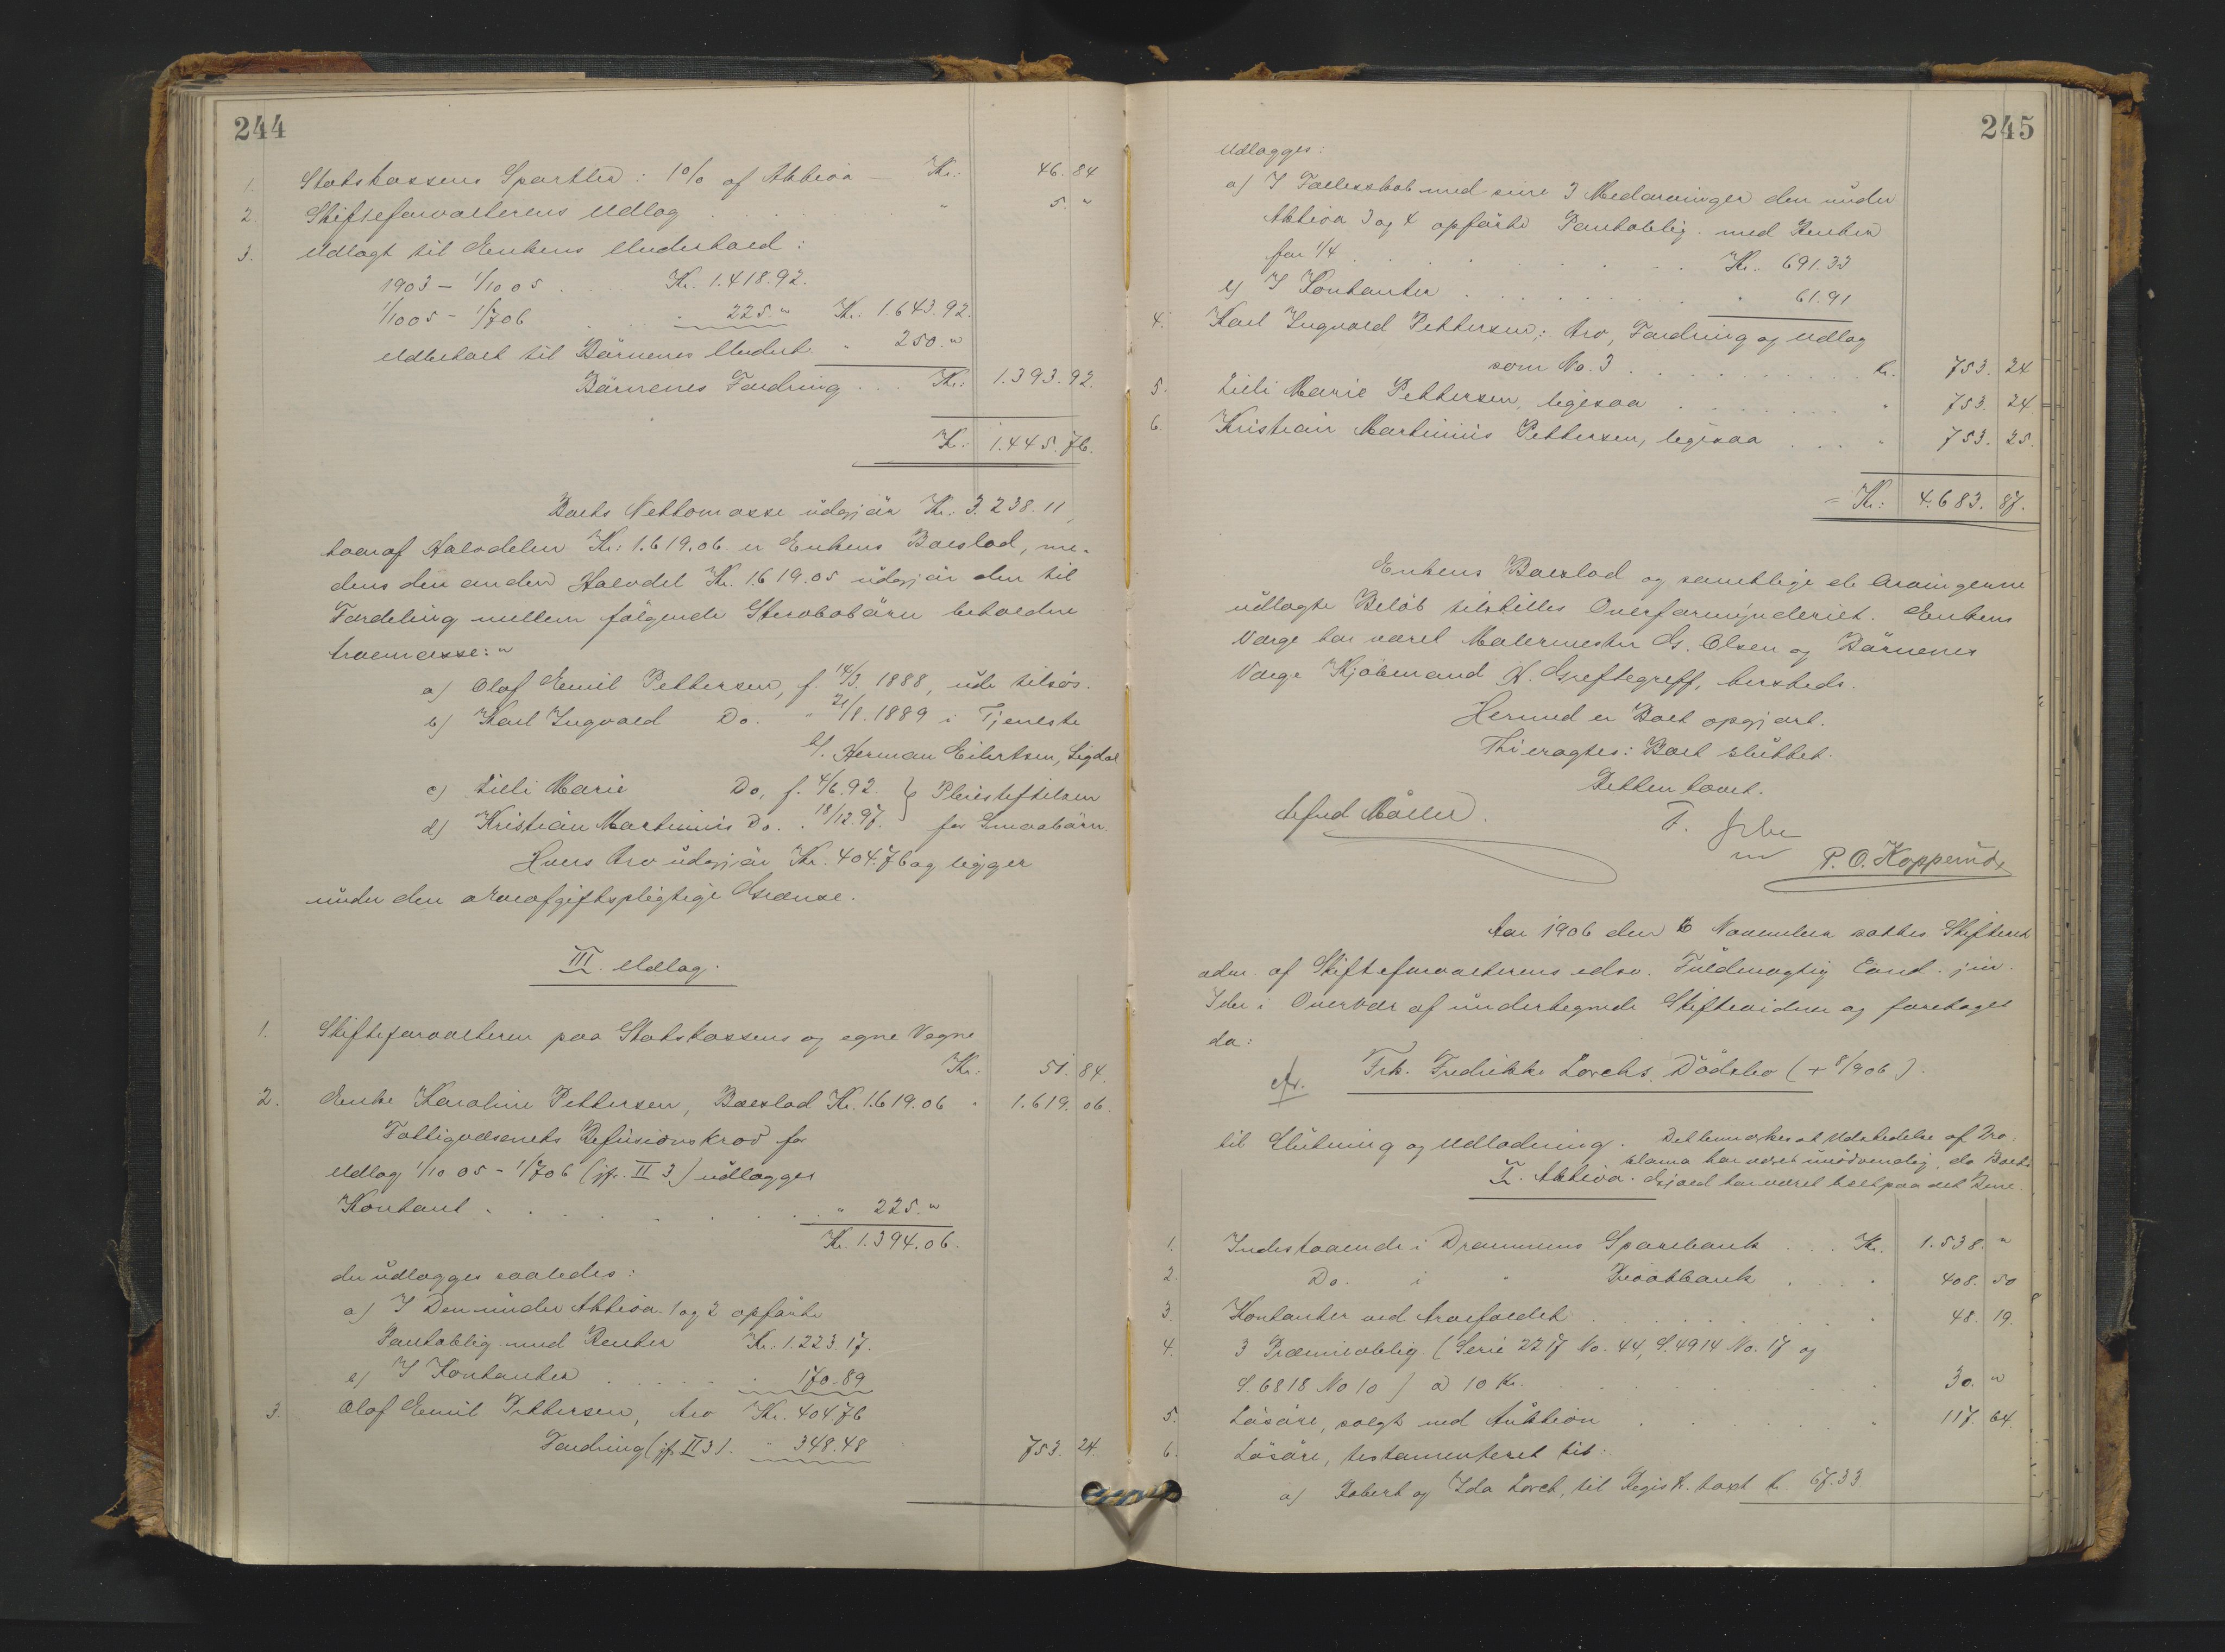 244
1. Statskassens Sportler: 1% af Aktiva — Kr: 46.84
2. Skifteforvalterens Udlæg . . . " 5."
3. Udlagt til Enkens Underhold:
1903 – 1/10 05 . . Kr. 1.418.92.
1/10 05 – 1/7 06 . . . 225." Kr: 1.643.92.
Udbetalt til Børnenes Underh. " 250."
Børnenes Fordring . . . Kr: 1.393.92.
Kr: 1.445.76.
Boets Nettomasse udgjør Kr. 3.238.11,
hvoraf Halvdelen Kr: 1.619.06. er Enkens Boeslod, me-
dens den anden Halvdel Kr. 1.619.05 udgjør den til
Fordeling mellem følgende Stervbobørn beholdne
Arvemasse: "
a) Olaf Emil Pettersen, f. 14/3. 1888, ude tilsøs.
b) Karl Ingvald Do. " 21/8. 1889 i Tjeneste
h/. Herman Eilertsen, Sigdal
c) Lilli Marie Do, f. 4/6.92. } Pleiestiftelsen
d) Kristian Martinius Do. . 18/12.97. for Smaabørn.
Hvers Arv udgjør Kr. 404.76 og ligger
under den arveafgiftspligtige Grænse.
III. Udlæg.
1. Skifteforvalteren paa Statskassens og egne Vegne
Kr: 51.84.
2. Enke Karoline Pettersen, Boeslod Kr. 1.619.06 " 1.619.06.
Fattigvæsenets Refusionskrav for
Udlæg 1/10 05 – 1/7 06 (jfr. II 3) udlægges
Kontant . . . . . " 225."
Kr. 1.394.06.
der udlægges saaledes:
a) I Den under Aktiva 1 og 2 opførte
Pantoblig. med Renter Kr: 1.223.17.
b) I Kontanter . . . . . 170.89
3. Olaf Emil Pettersen, Arv Kr. 404.76
Fordring (jfr. II 3). " 348.48 753.24.
245
Udlægges:
a) I Fællesskab med sine 3 Medarvinger den under
Aktiva 3 og 4 opførte Pantoblig. med Renter
for 1/4 . . . . . Kr. 691.33
b) I Kontanter . . . . . 61.91
4. Karl Ingvald Pettersen; Arv, Fordring og Udlæg
som No. 3 . . . . . Kr. 753.24
5. Lilli Marie Pettersen, ligesaa . . . . " 753.24
6. Kristian Martinius Pettersen, ligesaa . . . " 753.25.
= Kr: 4.683.87.
Enkens Boeslod og samtlige de Arvingerne
udlagte Beløb tilstilles Overformynderiet. Enkens
Værge har været Malermester G. Olsen og Børnenes
Værge Kjøbmand H. Greftegreff, hersteds.
Hermed er Boet opgjort.
Thi eragtes: Boet sluttet.
Retten hævet.
Møller.
P. O. Kopperud
Aar 1906 den 6 November sattes Skifteret
adm. af Skifteforvalterens edsv. Fuldmægtig Cand. jur.
Ihle i Overvær af undertegnede Skiftevidner og foretoges
da:
Frk. Fredrikke Lorchs Dødsbo (+ 8/9 06)
til Slutning og Udlodning. Det bemærkes at Udstedelse af Pro-
klama har været unødvendig, da Boets
I. Aktiva. Gjæld har været helt paa det Rene.
1. Indestaaende i Drammens Sparebank . . . Kr. 1.538."
2. Do. i " Privatbank . . . . 408.50
3. Kontanter ved Arvefaldet . . . . 48.19.
4. 3 Præmieoblig. (Serie 2217 No. 44, S. 4914 No. 17 og
S. 6818 No 10) à 10 Kr. . . . . 30."
5. Løsøre, solgt ved Auktion . . . . 117.64.
6. Løsøre, testamenteret til:
a) Robert og Ida Lorch, til Registr. taxt Kr 67.33